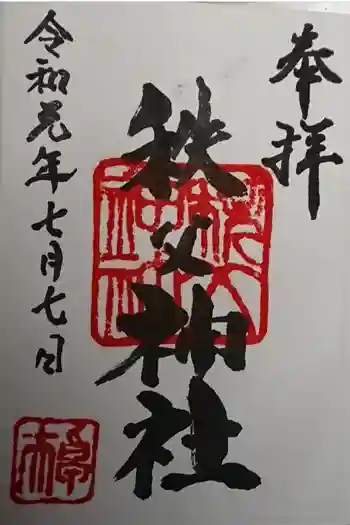 奉拝
秩父神社
令和元年七月七日